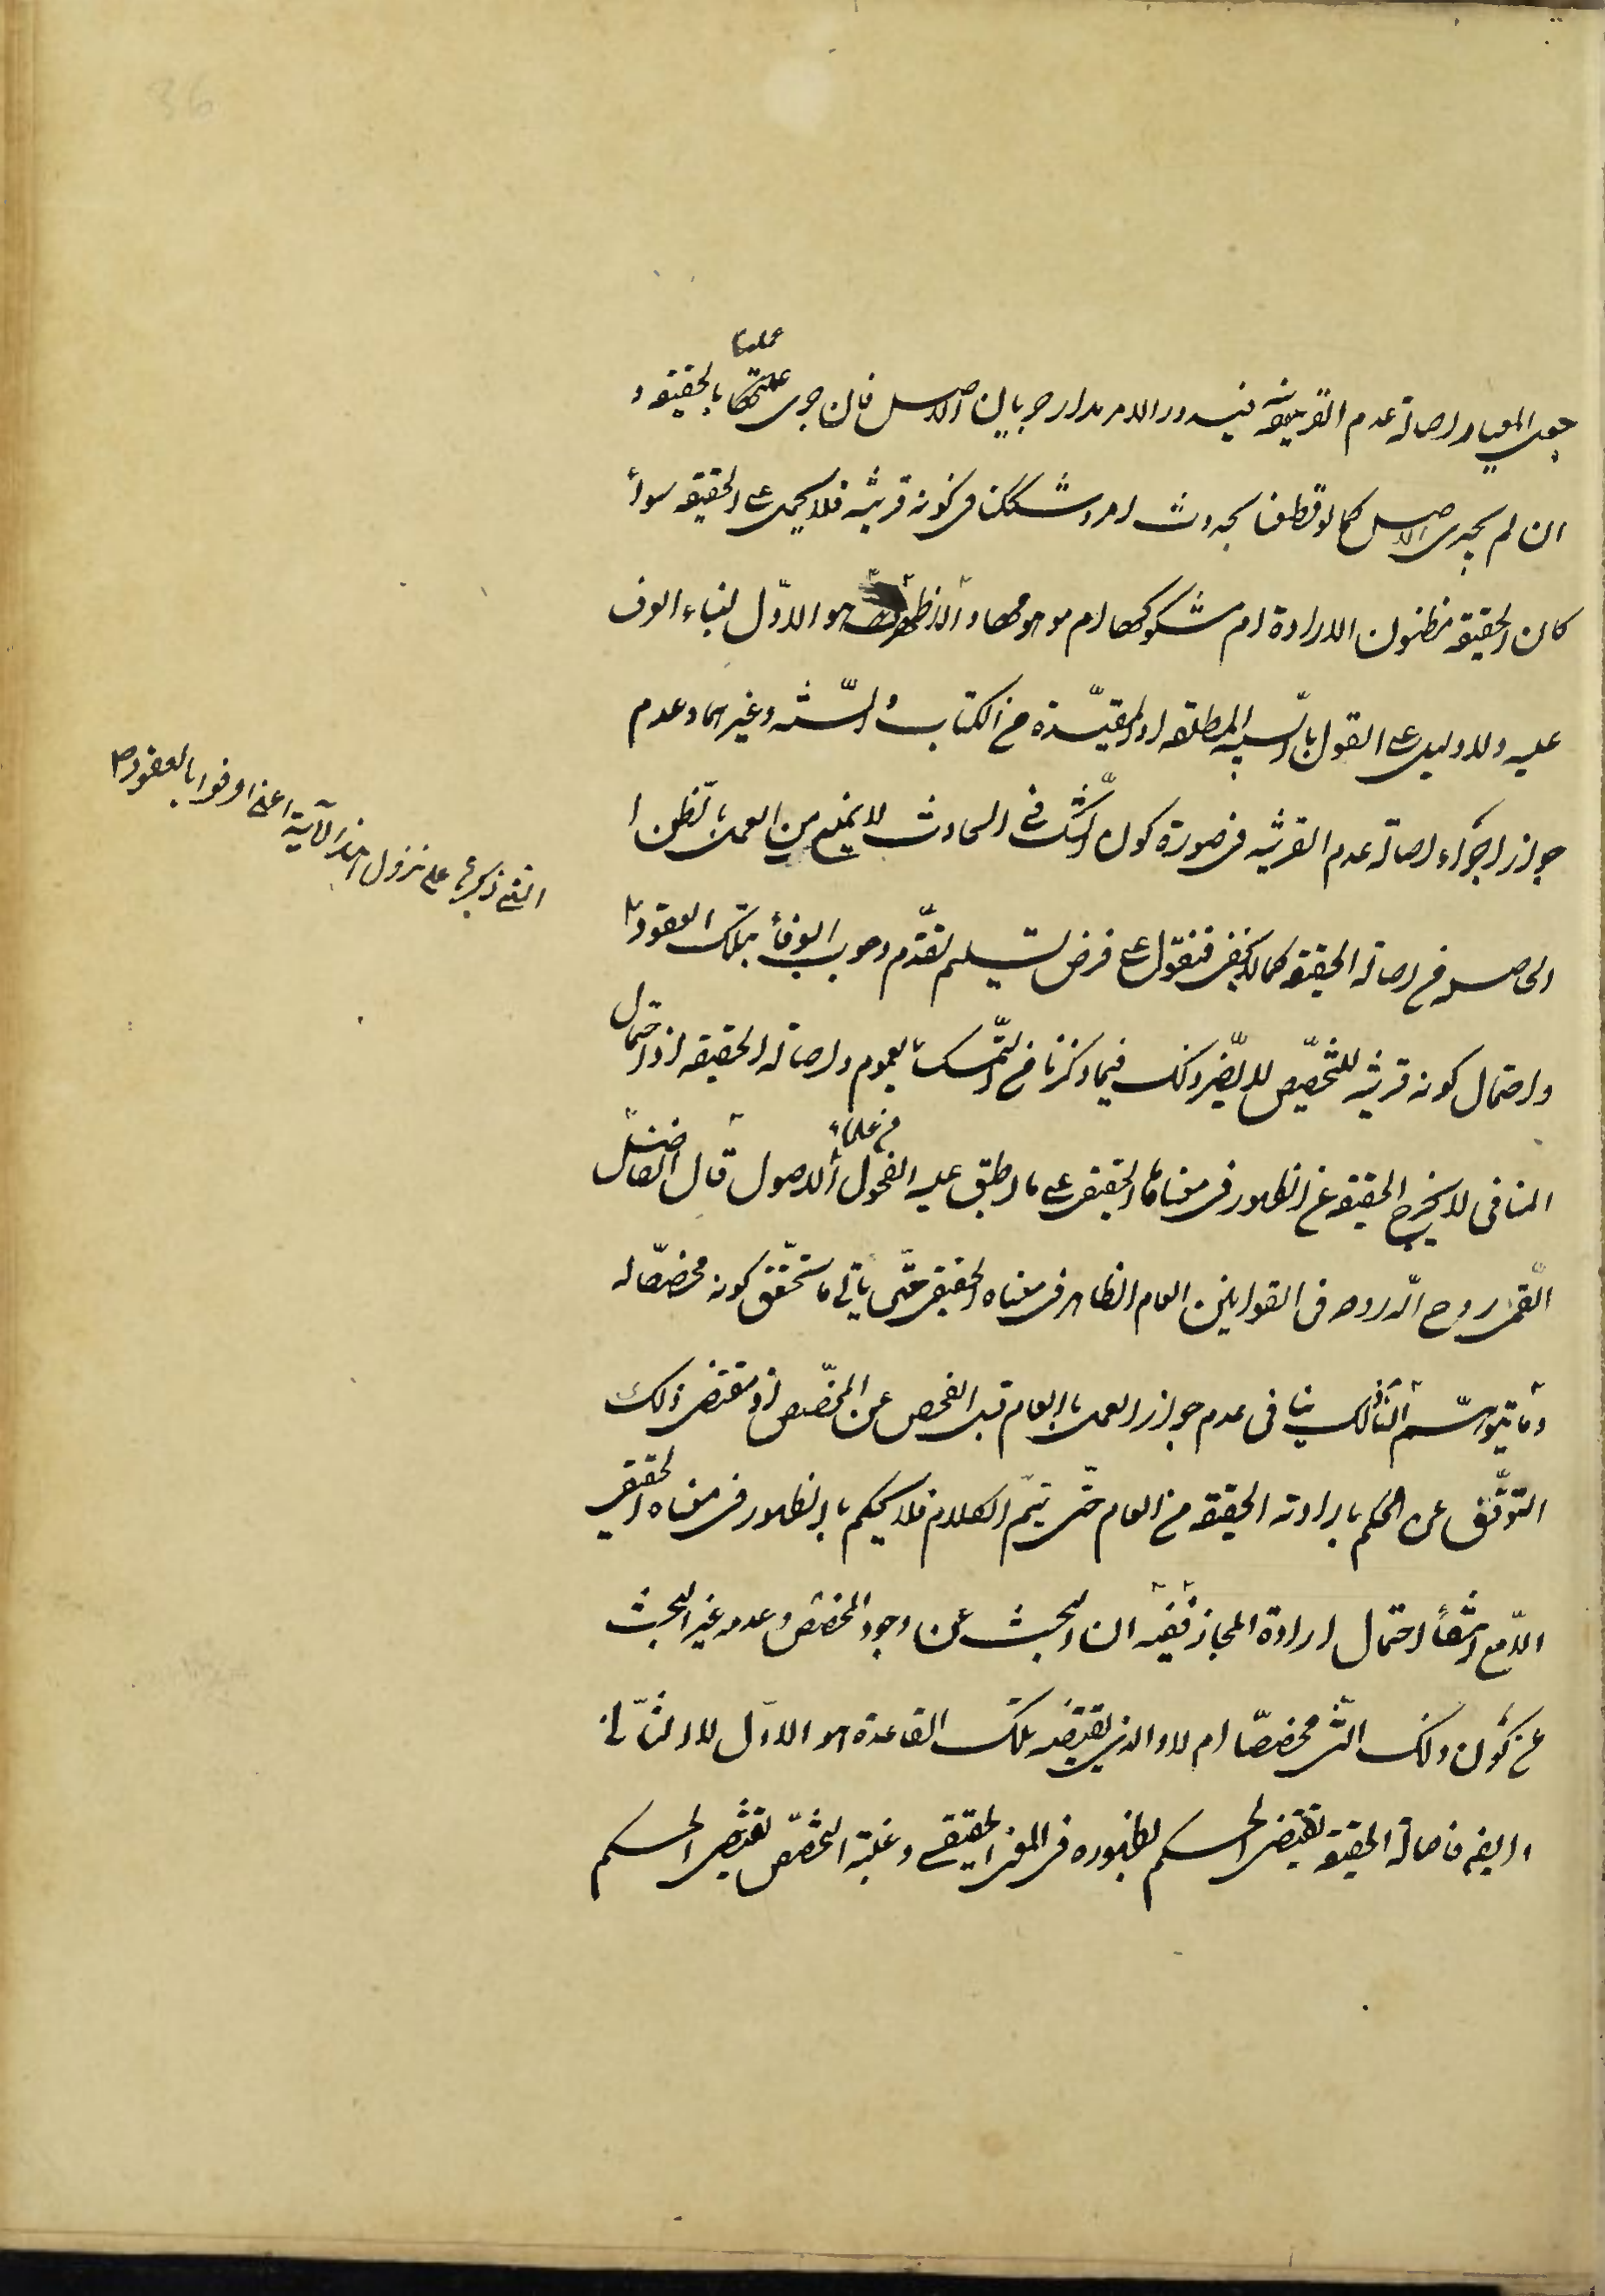 جعل المعيار اصالة عدم القرينة فيدور الامر مدار جريان الاصل فان جرى عملنا بالحقيقة و
ان لم يجرى الاصل كما لو قطعنا بحدوث امر و شككنا فى كونه قرينة فلا يحمل على الحقيقة سواء
كان الحقيقة مظنون الارادة ام مشكوكها ام موهومها و الاظهر هو الاول لبناء العرف
عليه و لا دليل على القول بالسببية المطلقة او المقيدة من الكتاب و السنة و غيرهما و عدم
جواز اجراء اصالة عدم القرينة فى صورة كون الشك فى الحادث لا يمنع من العمل بالظن ا
الحاصل من اصالة الحقيقة كما لا يخفى فنقول على فرض تسليم تقدم وجوب الوفاء بتلك العقود
التى ذكرتها على نزول هذه الآية اعنى اوفوا بالعقود
و احتمال كونه قرينة للتخصيص لا يضر ذلك فيما ذكرنا من التمسك بالعموم و اصالة الحقيقة اذ احتمال
المنافى لا يخرج الحقيقة عن الظهور فى معناها الحقيقى على ما اطبق عليه الفحول من علماء الاصول قال الفاضل
القمى روح الله روحه فى القوانين العام الظاهر فى معناه الحقيقى حتى ياتى ما يتحقق كونه مخصصا له
و ما يتوهم ان ذلك ينافى عدم جواز العمل بالعام قبل الفحص عن المخصص اذ مقتضى ذلك
التوقف عن الحكم بارادة الحقيقة من العام حتى يتم الكلام فلا يحكم بالظهور فى معناه الحقيقى
الا مع انتفاء احتمال ارادة المجاز ففيه ان البحث عن وجود المخصص و عدمه غير البحث
عن كون ذلك الشى مخصصا ام لا و الذى يقتضيه تلك القاعدة هو الاول لا الثانى
و ايضا فاصالة الحقيقة تقتضى الحكم لظهوره فى المعنى الحقيقى و غلبة التخصيص تقتضى الحكم